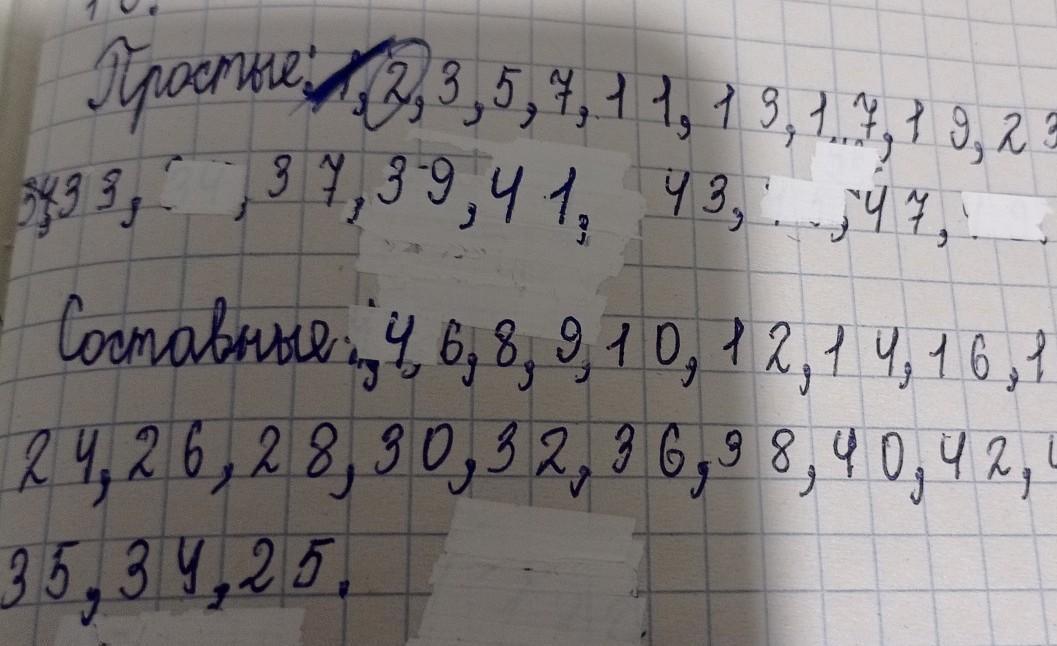 Простые: 1, 2, 3, 5, 7, 11, 13, 17, 19, 23
33, 37, 39, 41, 43, 47,
Составные: 4, 6, 8, 9, 10, 12, 14, 16, 1
24, 26, 28, 30, 32, 36, 38, 40, 42,
35, 34, 25.